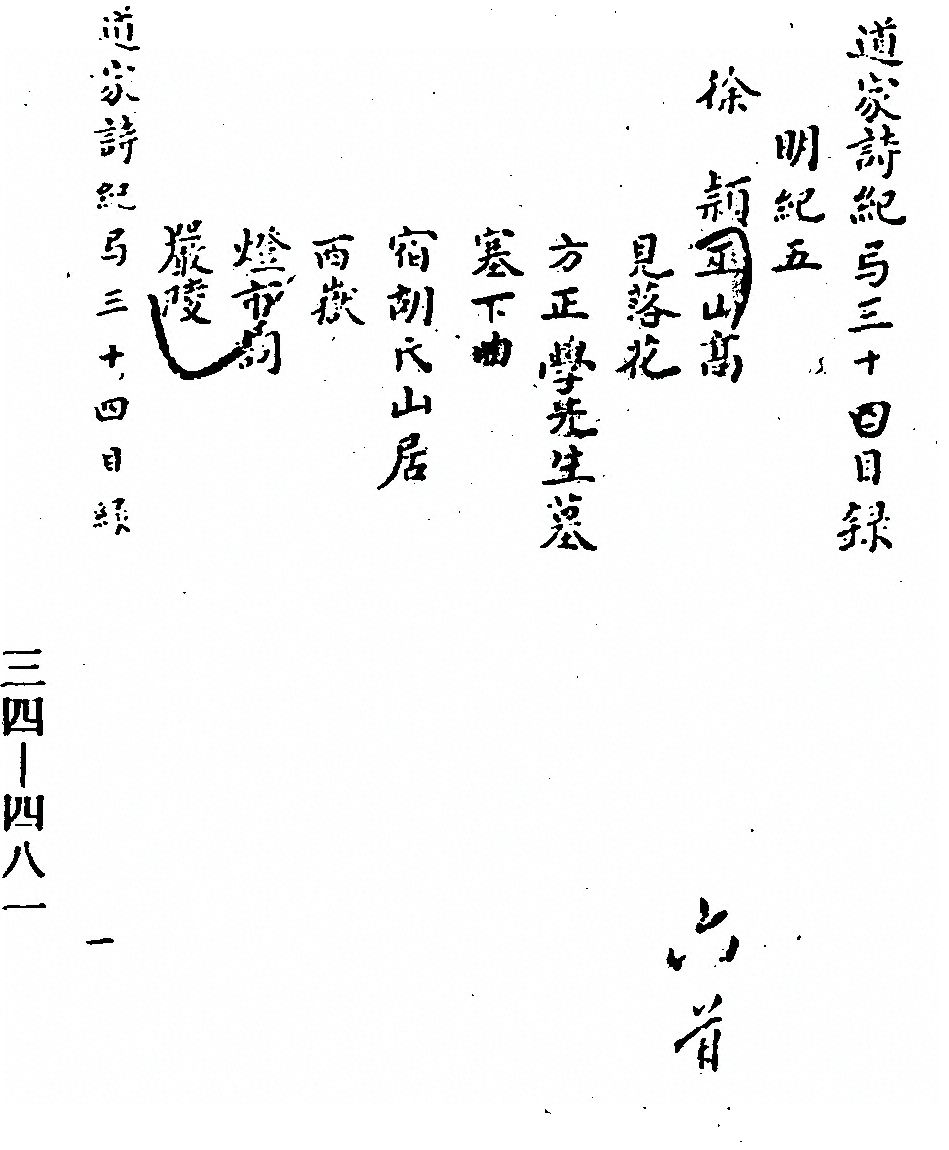 道家詩紀弓三十四目録
明紀五
徐 頴
巫山高
見落花
方正學先生墓
塞下曲
宿胡氏山居
西嶽
燈市詞
嚴陵
六首
道家詩紀弓三十四目録
一
三四—四八一